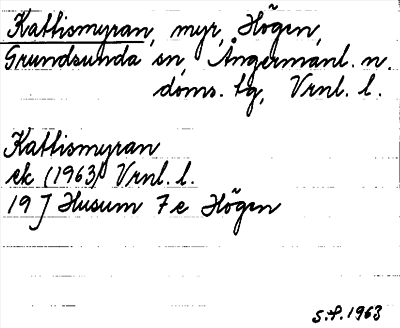 Kattismyran, myr, Högen,
Grundsunda sn, Ångermanl. n.
doms. tg, Vrnl. l.
Kattismyran
ek (1963) Vrnl. l.
19 J Husum 7e Högen
S.P. 1963